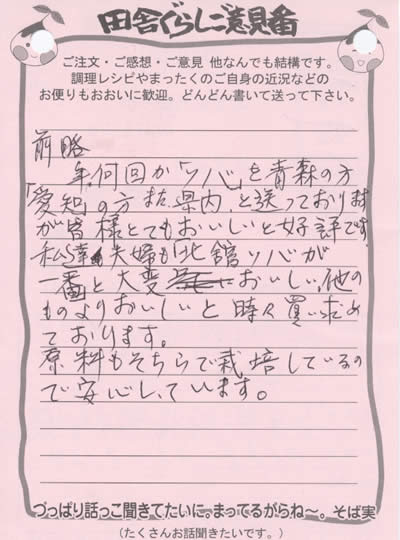 田舎ぐらしご意見番
ご注文・ご感想・ご意見 他なんでも結構です。
調理レシピやまったくのご自身の近況などの
お便りもおおいに歓迎。どんどん書いて送って下さい。
前略
年、何回か「ソバ」を青森の方
「愛知」の方また県内、と送っております
が皆様とてもおいしいと好評です。
私達夫婦も「北舘ソバ」が
一番と大変おいしい、他の
ものよりおいしいと時々買い求め
ております。
原料もそちらで栽培しているの
で安心しています。
づっぱり話っこ聞きてたいに。まってるがらね〜。そば実
(たくさんお話聞きたいです。)